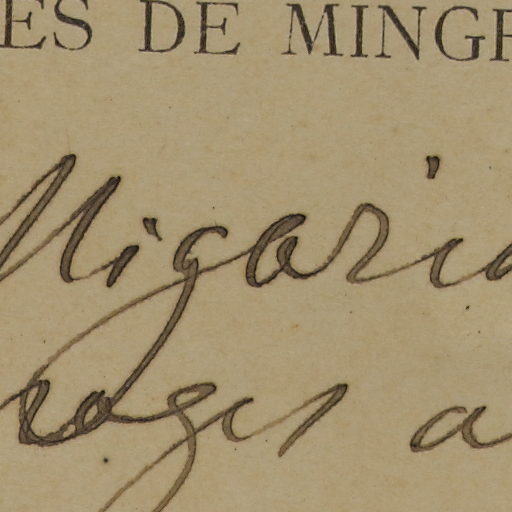 ES DE MINGR
Migaria
loger a